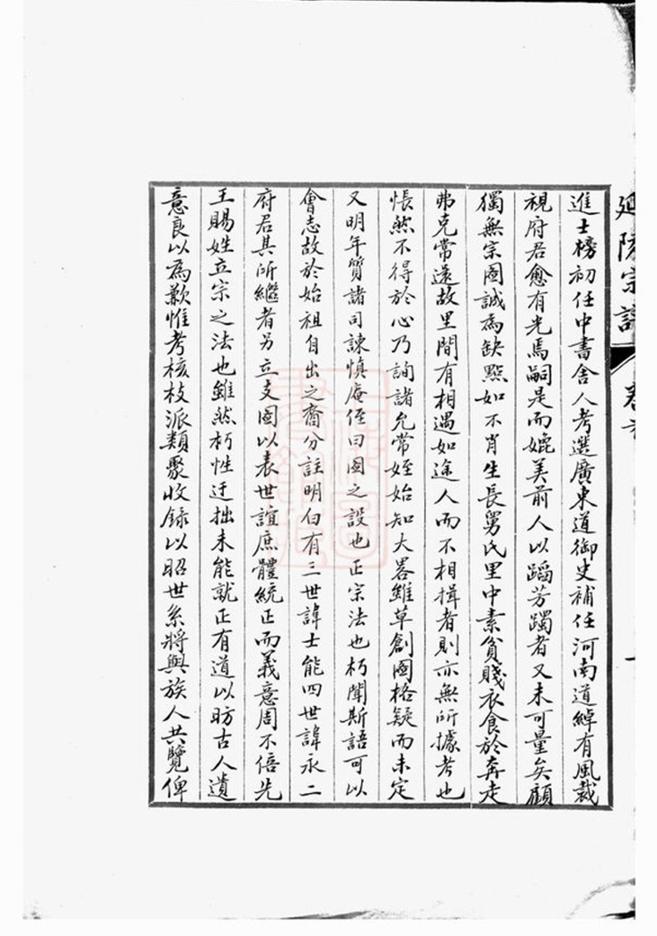 延陵宗譜
卷首
進士榜初任中書舍人考選廣東道御史補任河南道綽有風裁
視府君愈有光焉嗣是而媲美前人以蹈芳躅者又未可量矣顧
獨無宗圖誠為缺點如不肖生長舅氏里中素貧賤衣食於奔走
弗克常還故里間有相遇如途人而不相揖者則亦無所據考也
悵然不得於心乃詢諸允常姪始知大畧雖草創圖格疑而未定
又明年質諸司諫慎庵侄曰圖之設也正宗法也朽聞斯語可以
會志故於始祖自出之裔分註明白有三世諱士能四世諱永二
府君其所繼者另立支圖以表世誼庶體統正而義意周不倍先
王賜姓立宗之法也雖然朽性迂拙未能就正有道以昉古人遺
意良以為歉惟考核枝派類聚收録以昭世系將與族人共覽俾